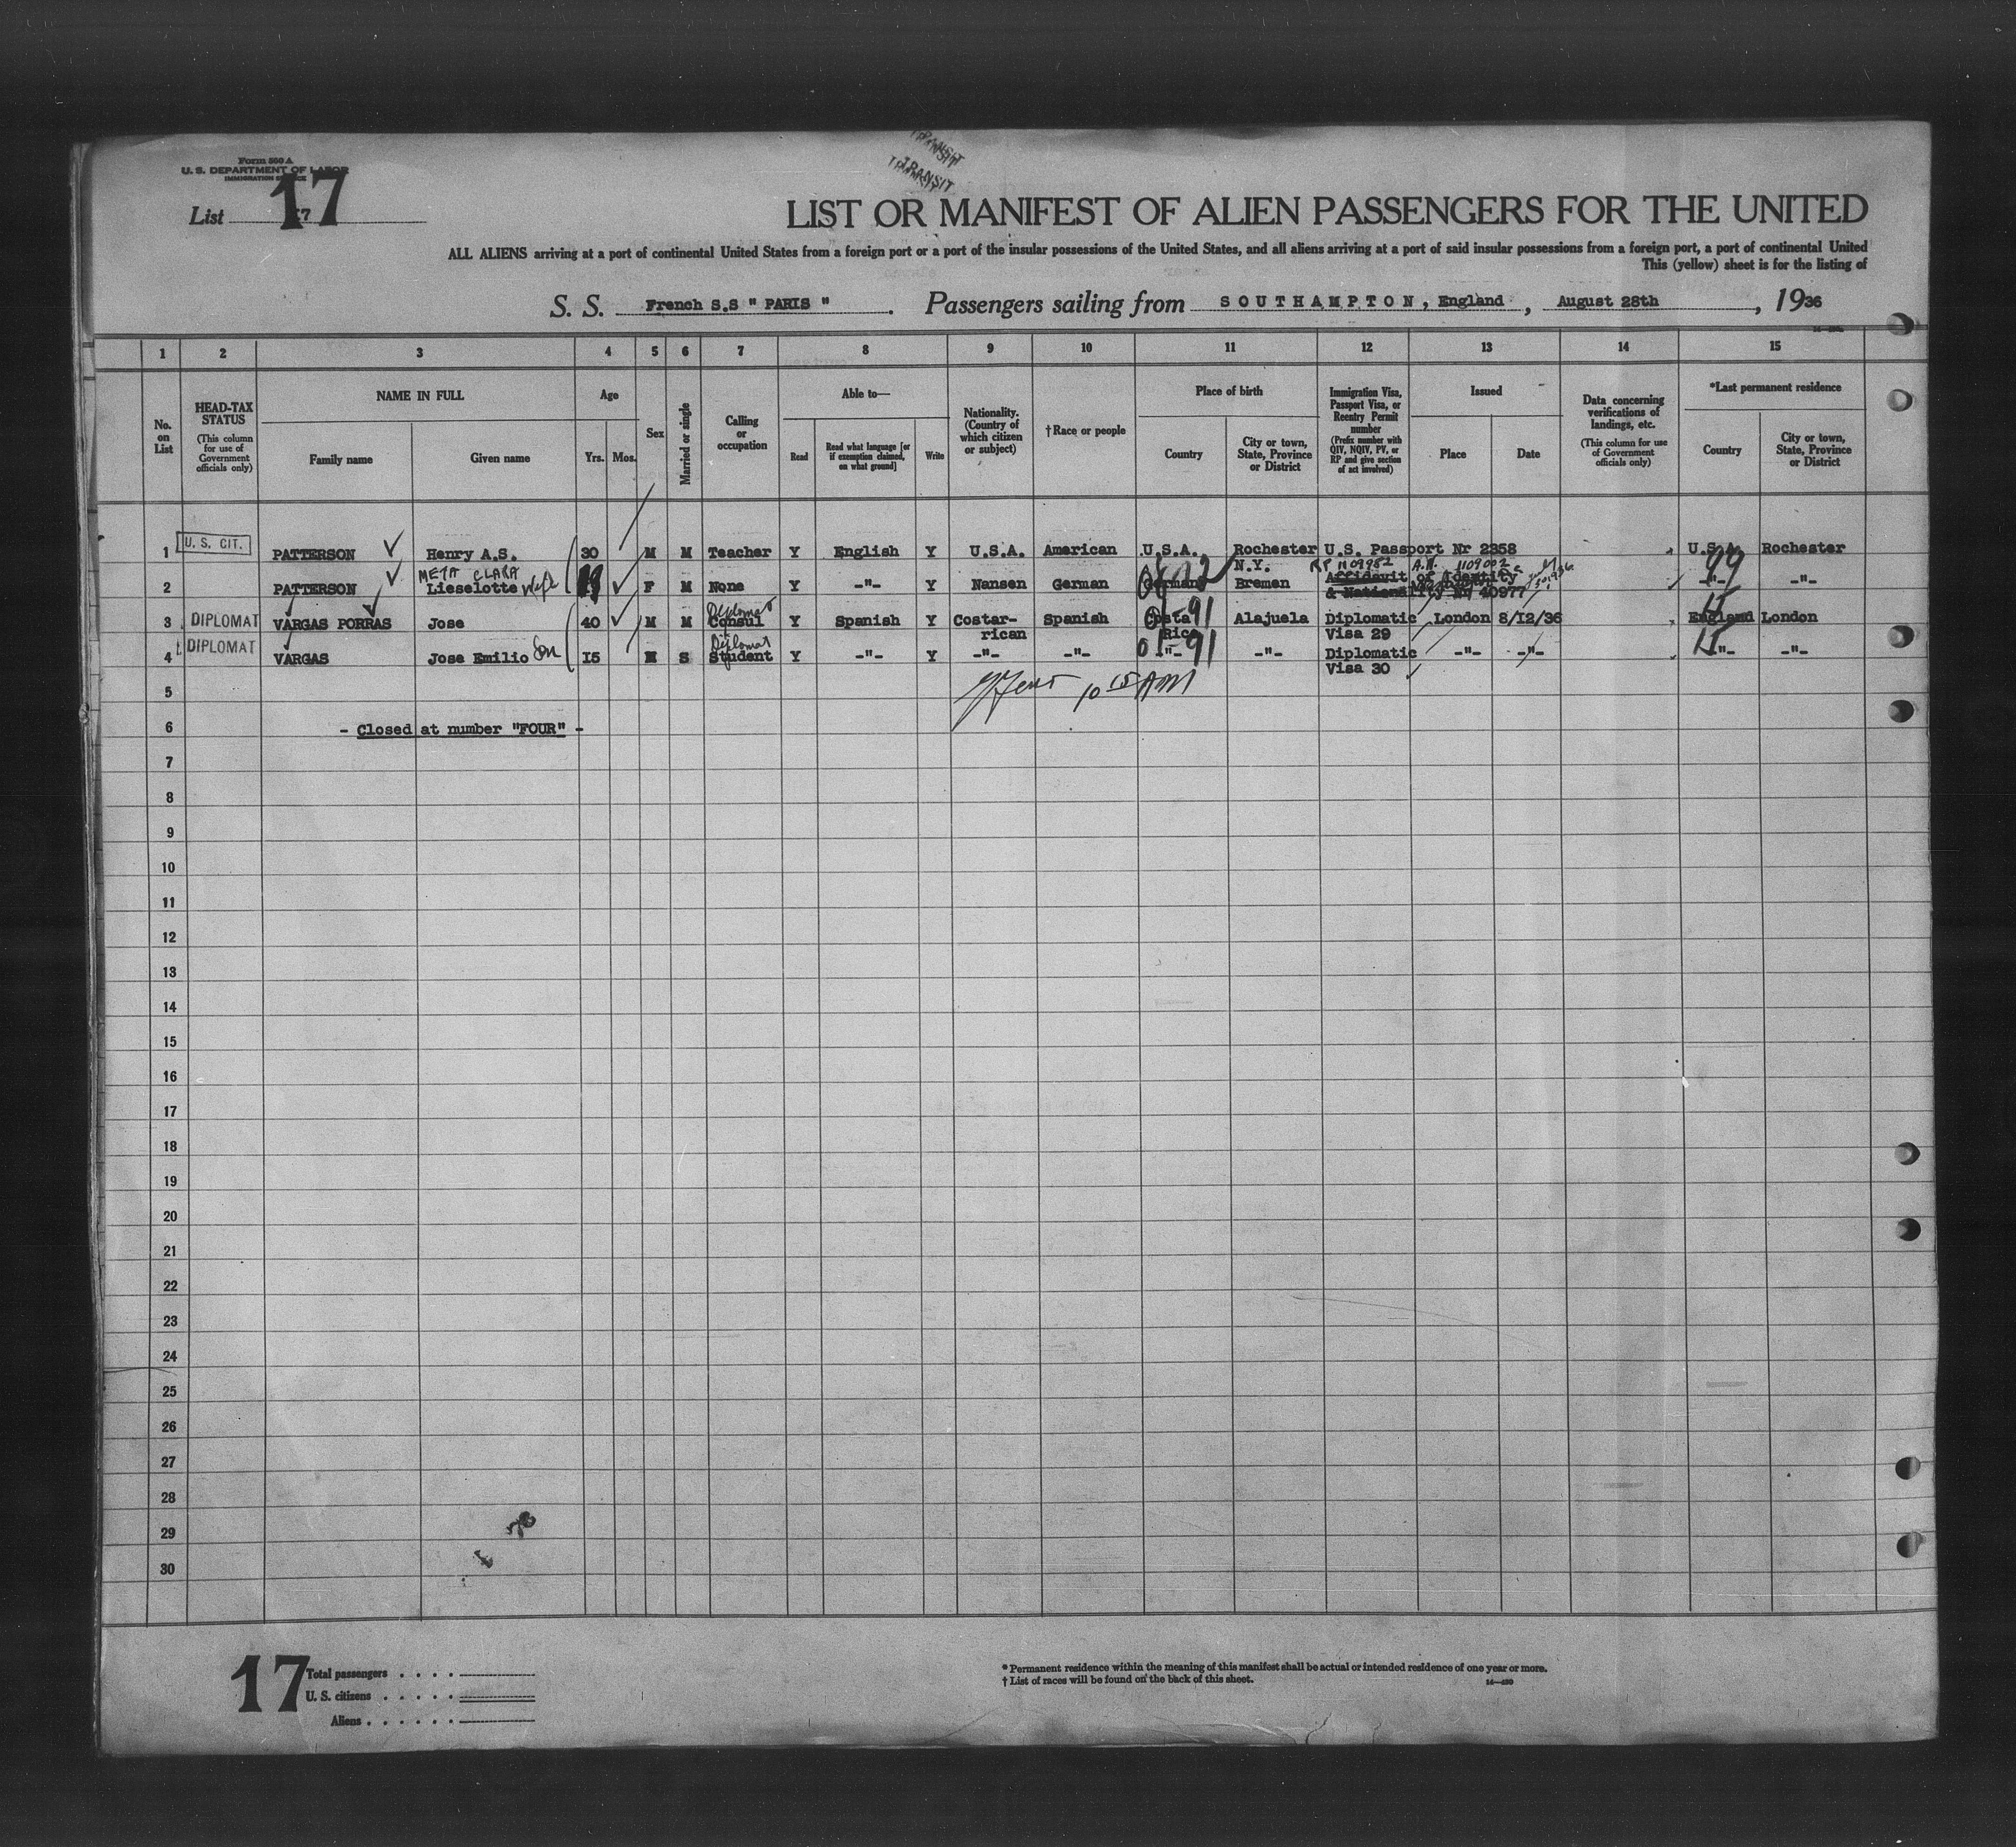 TRANSIT
TRANSIT
Form 500 A
U. S. DEPARTMENT OF LABOR
IMMIGRATION SERVICE
List 17
17
LIST OR MANIFEST OF ALIEN PASSENGERS FOR THE UNITED
ALL ALIENS arriving at a port of continental United States from a foreign port or a port of the insular possessions of the United States, and all aliens arriving at a port of said insular possessions from a foreign port, a port of continental United
This (yellow) sheet is for the listing of
S. S. French S.S " PARIS " . Passengers sailing from SOUTHAMPTON, England , August 28th , 1936
1 2 3 4 5 6 7 8 9 10 11 12 13 14 15
No. on List
HEAD-TAX STATUS (This column for use of Government officials only)
NAME IN FULL
Family name Given name
Age
Yrs. Mos.
Sex
Married or single
Calling or occupation
Able to—
Read Read what language [or if exemption claimed, on what ground] Write
Nationality. (Country of which citizen or subject)
†Race or people
Place of birth
Country City or town, State, Province or District
Immigration Visa, Passport Visa, or Reentry Permit number (Prefix number with QIV, NQIV, PV, or RP and give section of act involved)
Issued
Place Date
Data concerning verifications of landings, etc. (This column for use of Government officials only)
*Last permanent residence
Country City or town, State, Province or District
1 U. S. CIT. PATTERSON Henry A.S. 30 M M Teacher Y English Y U.S.A. American U.S.A. Rochester U.S. Passport Nr 2358 U.S.A. Rochester
N.Y.
META CLARA RP 1109982 A.N. 1109002 99
2 PATTERSON Lieselotte Wife F M None Y -"- Y Nansen German Germany Bremen Affidavit of Identity -"- -"-
& Nationality Nr 40977
Diplomat
3 DIPLOMAT VARGAS PORRAS Jose 40 M M Consul Y Spanish Y Costar- Spanish Costa Alajuela Diplomatic London 8/12/36 England London
rican Rica 01-91 Visa 29
Diplomat
4 DIPLOMAT VARGAS Jose Emilio Son 15 M S Student Y -"- Y -"- -"- -"- 01-91 -"- Diplomatic -"- -"- -"- -"-
Visa 30
5 10 15 AM
6 - Closed at number "FOUR" -
7
8
9
10
11
12
13
14
15
16
17
18
19
20
21
22
23
24
25
26
27
28
29
30
17
Total passengers . . . .
U. S. citizens . . . . .
Aliens . . . . . .
* Permanent residence within the meaning of this manifest shall be actual or intended residence of one year or more.
† List of races will be found on the back of this sheet.